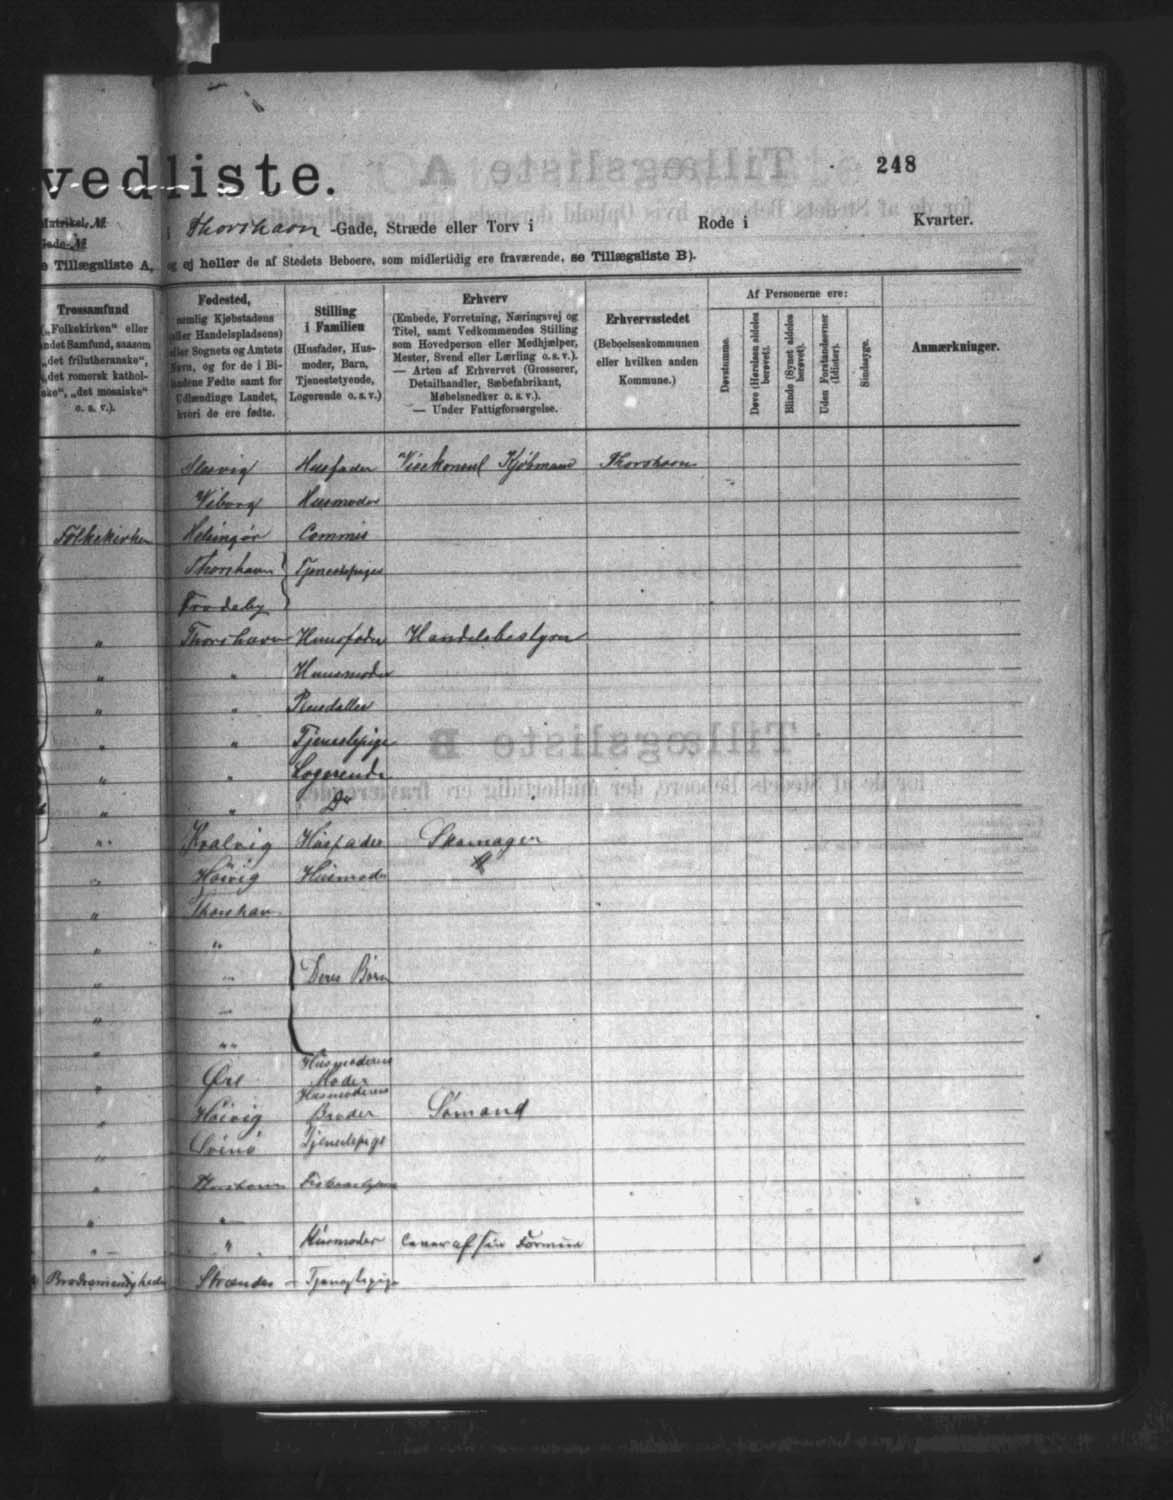 vedliste.
248
Matrikel-№
Gade-№
i Thorshavn -Gade, Stræde eller Torv i Rode i Kvarter.
e Tillægsliste A, og ej heller de af Stedets Beboere, som midlertidig ere fraværende, se Tillægsliste B).
Trossamfund
(„Folkekirken“ eller
andet Samfund, saasom
„det frilutheranske“,
„det romersk kathol-
ske“, „det mosaiske“
o. s. v.).
Fødested,
nemlig Kjøbstadens
eller Handelspladsens)
eller Sognets og Amtets
Navn, og for de i Bi-
landene Fødte samt for
Udlændinge Landet,
hvori de ere fødte.
Stilling
i Familien
(Husfader, Hus-
moder, Barn,
Tjenestetyende,
Logerende o. s. v.)
Erhverv
(Embede, Forretning, Næringsvej og
Titel, samt Vedkommendes Stilling
som Hovedperson eller Medhjælper,
Mester, Svend eller Lærling o. s. v.).
— Arten af Erhvervet (Grosserer,
Detailhandler, Sæbefabrikant,
Møbelsnedker o. s. v.).
— Under Fattigforsørgelse.
Erhvervsstedet
(Beboelseskommunen
eller hvilken anden
Kommune.)
Af Personerne ere:
Døvstumme.
Døve (Hørelsen aldeles
berøvet).
Blinde (Synet aldeles
berøvet).
Uden Forstandsevner
(Idioter).
Sindssyge.
Anmærkninger.
Slesvig Husfader Visekonsul Kjøbmand Thorshavn
Viborg Husmoder
Folkekirken Helsingør Commis
Thorshavn } Tjenestepiger
Frodeby
" Thorshavn Huusfader Handelsbestyrer
" " Huusmoder
" " Pleiedatter
" " Tjenestepige
" " Logerende
" " Do
" Kvalvig Husfader Skomager
" Höivig Husmoder
" Thorshavn
" "
" " Deres Börn
" "
" "
Husmoderens
" Øre Moder
Husmoderens
" Höivig Broder Sömand
" Svinö Tjenestepige
" Thorshavn
" "
" " Husmoder lever af sin Formue
Brodremenighede Strænder Tjenestepige